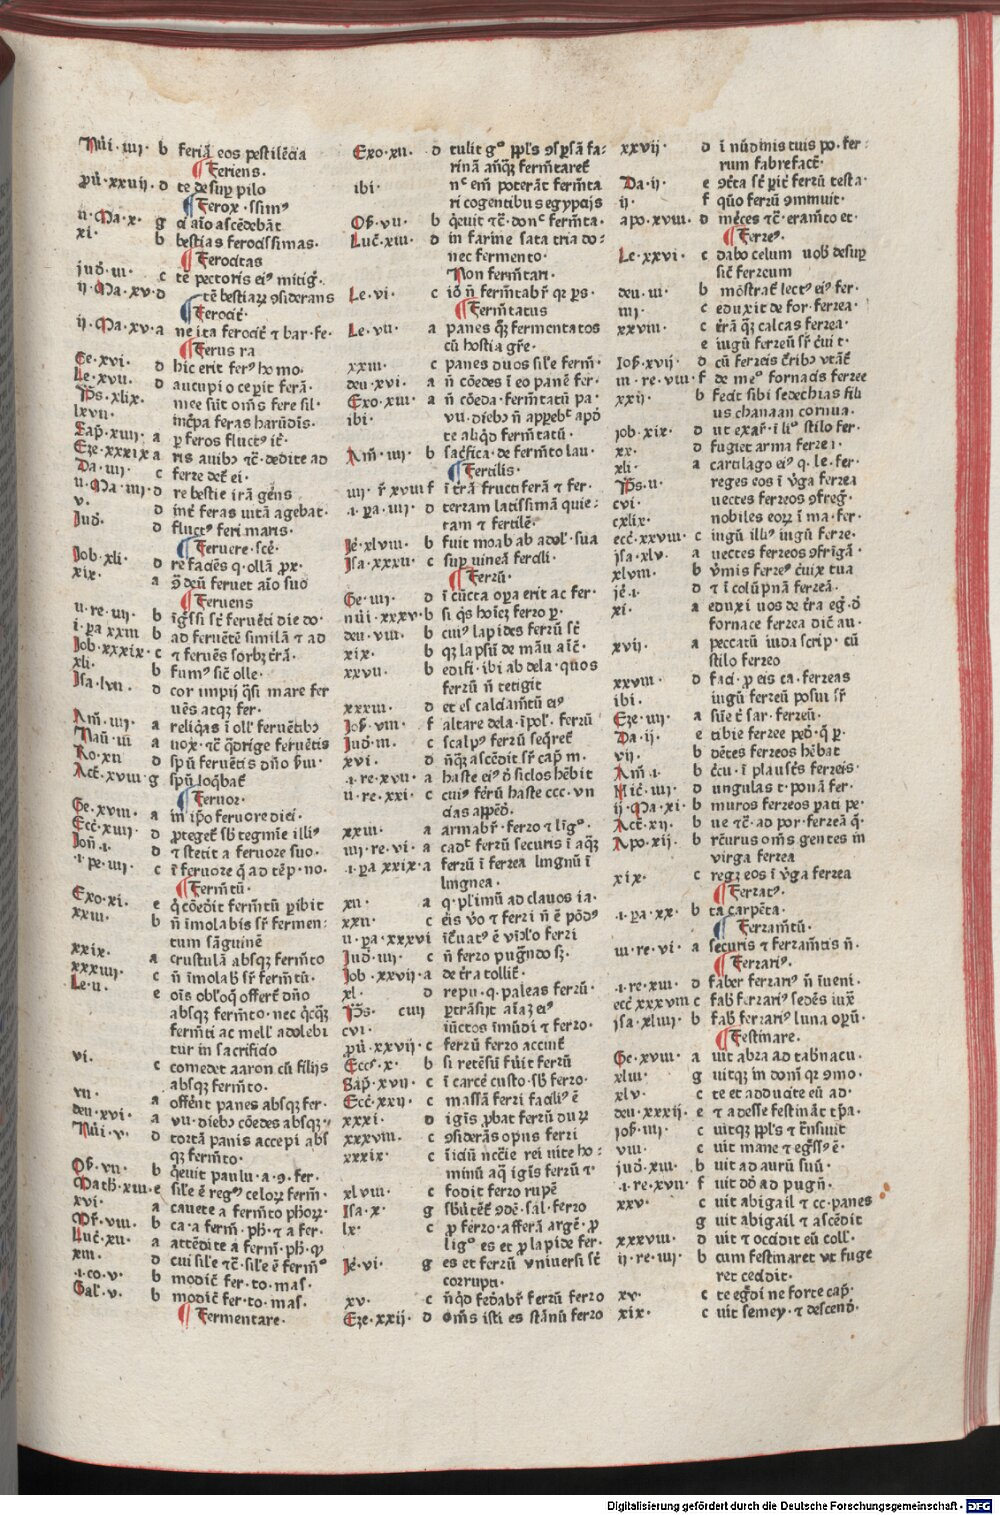 Nūi·iiij· b feriā eos pestilēcia
¶ Feriens·
ꝓū·xxvij· d te desuꝑ pilo
¶ Ferox·ssimꝰ
ij·Ma·x· g aīo ascēdebāt
xi· b bestias ferocissimas·
¶ Ferocitas
iud̄·iii· c pectoris eiꝰ mitiḡ·
ij·Ma·xv· d tē bestiaꝝ ꝯsiderans
¶ Ferocit̄·
ij·Ma·xv· a ne ita ferocit̄ ⁊ bar·fe·
¶ Ferus ra
Ge·xvi· d hic erit ferꝰ homo·
Le·xvii· d aucupio ceꝑit ferā·
Ps·xlix· mee sūt om̄s fere sil·
lxvii· īcrepa feras harūdīs·
Sap̄·xiiij· a ꝑ feros fluctꝰ
Eze·xxxix a ris auibꝫ ⁊c̄·dedite ad
Da·iiij· c ferre ei·
ij·Ma·iiij· d re bestie irā gēns
v· d feras uitā agebat·
Iud̄· d fluctꝰ feri maris·
¶ Feruere·
Iob·xli· d re faciēs q·ollā ꝓx·
xix· a deū feruet aīo suo
¶ Feruens
ij·re·iiij· b igr̄ssi st̄ feruēti die do·
i·pa xxiii b ad feruētē similā ⁊ ad
Iob·xxxix· c ⁊ feruēs sorbꝫ t̄rā·
xli· b fumꝰ sic̄ olle·
Isa·lvii· d cor impij q̄si mare fer
uēs atqꝫ fer·
Am̄·iiij· a reliq̄as ī oll̄ feruētibꝫ
Naū·iii a uox·⁊c̄ q̄drige feruētis
Ro·xii d sp̄u feruētis dn̄o
Act̄·xviii· g sp̄u loq̄bat̄
¶ Feruor·
Ge·xviii· a in ip̄o feruore diei·
Ecc̄·xiiij· d ꝓteget̄ sb̄ tegmīe illiꝰ
Ion̄·i· d ⁊ stetit a feruore suo·
·i·pe·iiij· c ī feruore q̄ ad tēp·no·
¶ Ferm̄tū·
Exo·xi· e q̄ cōedit ferm̄tū ꝑibit
xxiii· b n̄ īmolabis sr̄ fermen·
tum sāguinē
xxix· a crustulā absqꝫ ferm̄to
xxxiiij· c n̄ īmolab̄ sr̄ ferm̄tū·
Le·ii· e oīs obl̄o offert̄ dn̄o
absqꝫ ferm̄to·nec qcqꝫ
ferm̄ti ac mell̄ adolebi
tur in sacrificio
vi· c comedet aaron cū filijs
absqꝫ ferm̄to·
vii· a offēnt panes absqꝫ fer·
deu·xvi· a vii·diebꝫ cōedes absqꝫ·
Nūi·v· d tortā panis accepi abs
qꝫ ferm̄to·
Os̄·vii· b q̄euit paulu·a·9·fer·
Math̄·xiii· e sil̄e ē regꝰ celoꝝ ferm̄·
xvi· a cauete a ferm̄to ph̄oꝝ·
Mr̄·viii· b ca·a ferm̄·ph̄·⁊ a fer·
Luc̄·xii· a attēdite a ferm̄·ph̄·
xiii· d cui sil̄e ⁊c̄·sil̄e ē ferm̄ᵒ
·i·co·v· b modic̄ fer·to·mas·
Gal̄·v· b modic̄ fer·to·mas·
¶ Fermentare·
Exo·xii· d tulit gᵒ ppl̄s ꝯsꝑsā fa·
rinā an̄qꝫ ferm̄taret̄
ibi· nᶜ em̄ poterāt ferm̄ta
ri cogentibus egypcijs
Os̄·vii· b q̄euit ⁊c̄·donᶜ ferm̄ta·
Luc̄·xiii· d in farine sata tria do·
nec fermento·
Non ferm̄tari·
Le·vi· c iō n̄ ferm̄tabr̄ qr ps·
¶ Ferm̄tatus
Le·vii· a panes qꝫ fermentatos
cū hostia gr̄e·
xxiii· c panes duos sil̄e ferm̄·
deu·xvi· a n̄ cōedes ī eo panē fer·
Exo·xiii· a n̄ cōeda·ferm̄tatū pa·
ibi· vii·diebꝫ n̄ appebt̄ apō
te aliqd ferm̄tatū·
Am̄·iiij· b sac̄fica·de ferm̄to lau·
¶ Fertilis·
iiij·r̄·xviii f ī t̄rā fructiferā ⁊ fer·
·i·pa·iiij· d terram latissimā quie·
tam ⁊ fertilē·
Ie·xlviii· b fuit moab ab adol̄·sua
Isa·xxxii· c suꝑ uineā fertili·
¶ Ferrū·
Ge·iiij· d ī cūcta oꝑa erit ac fer·
nūi·xxxv· b si qs hoīeꝫ ferro ꝑ·
deu·viii· b cuiꝰ lapides ferrū st̄
xix· b qꝫ lapsū de māu
xxvii· b edifi·ibi ab dela·quos
ferrū n̄ tetigit
xxxiii· d et es calciam̄tū eiꝰ
Ios̄·viii· f altare dela·īpol̄·ferrū
Iud̄·iii· c scalpꝰ ferrū seq̄ret̄
xvi· d n̄qꝫ ascēdit sr̄ cap̄ m·
·i·re·xvii· a haste eiꝰ siclos hēbit
ij·re·xxi· c cuiꝰ fērū haste ccc·vn
cias appēd·
xxiii· a armabr̄·ferro ⁊ līgᵒ·
iiij·re·vi· a cad̄t ferrū securis ī aqꝫ
·i·pa·xxix·a ferrū ī ferrea lingnū ī
lingnea·
xii· a q·plimū ad clauos ia·
xxii· c eīs v̄o ⁊ ferri n̄ ē pōdꝰ
ij·pa·xxxvi ē vicl̄o ferri
Iud̄·iiij· c n̄ ferro pugn̄do sꝫ·
Iob·xxvii·a de t̄ra tollit̄·
xl· d repu·q·paleas ferrū·
Ps· ciiij ꝑtrāsijt aīaꝫ eiꝰ
cvi· iūctos īmūdi ⁊ ferro·
ꝓū·xxvij· c ferrū ferro acuit̄
Eccᵉ·x· b si retēsū fūit ferrū
Sap̄·xvij· c ī carcē custo·sb̄ ferro·
Ecc̄·xxij· c massā ferri faciłꝰ ē
xxxi· d igīs ꝓbat ferrū duꝝ
xxxviii· c ꝯsiderās opus ferri
xxxix· c īiciū nccīe rei uite ho·
minū aq̄ igīs ferrū ⁊
xlviii· c fodit ferro rupē
Isa·x· g sb̄ūtēt̄ ꝯdē·sal·ferro
lx· c ꝓ ferro·afferā argē·ꝓ
ligᵒ es et ꝓ lapide fer·
Ie·vi· g es et ferrū vniuersi st̄
corrupti·
xv· c n̄qd fed̄abr̄ ferrū ferro
Eze·xxij· d om̄s isti es stānū ferro
xxvij· d ī nūdinis tuis po·fer·
rum fabrefact̄·
Da·ij· e ꝯt̄ta st̄ ꝑit̄ ferrū testa·
ij· f quō ferrū ꝯmmuit·
apo·xviii· d mēces ⁊c̄·eram̄to et·
¶ Ferreꝰ·
Le·xxvi· c dabo celum uob̄ desuꝑ
sic̄ ferreum
deu·iii· b mōstrat̄ lectꝰ eiꝰ fer·
iiij· c eduxit de for·ferrea·
xxviii· c t̄rā qꝫ calcas ferrea·
e iugū ferreū sr̄ c̄ui t·
Ios̄·xvij· d cū ferreis c̄ribꝫ vtāt̄
iii·re·viii· f de meᵒ fornacis ferree
xxij· b fecit sibi sedechias fili
us chanaan cornua·
iob·xix· d ut exar̄·ī liᵒ stilo fer·
xx· d fugiet arma ferrei·
xli· a cartilago eiꝰ q·le·fer·
Ps·ii· reges eos ī v̄ga ferrea
cvi· uectes ferreos ꝯfreḡ·
cxlix· nobiles eoꝝ ī ma·fer·
ecc̄·xxviii· c iugū illiꝰ iugū ferre·
isa·xlv· a uectes ferreos ꝯfrīgā·
xlviii· b v̄mis ferreꝰ c̄uix tua
ie·i· d ⁊ ī colūpnā ferreā·
xi· a eduxi uos de t̄ra eḡ·d̄
fornace ferrea dic̄ au·
xvij· a peccatū iuda scrip·cū
stilo ferreo
xxviii· d faci·ꝓ eis ca·ferreas
ibi· iugū ferreū posui sr̄
Eze·iiij· a sūe t̄ sar·ferreū·
Da·ij· e tibie ferree ped̄·q̄ ꝑ·
vij· b dētes ferreos hēbat
Am̄·i· b ī plaust̄s ferreis·
Mic̄·iiij· d ungulas t·ponā fer·
ij·Ma·xi· b muros ferreos pati pe·
Act̄·xij· b ue ⁊c̄·ad por·ferreā q̄·
Apo·xij· b rc̄urus om̄s gentes in
virga ferrea
xix· c regꝫ eos ī v̄ga ferrea
¶ Ferratꝰ·
·i·pa·xx· b ta carpēta·
¶ Ferram̄tū·
iii·re·vi· a securis ⁊ ferram̄tis n̄·
¶ Ferrariꝰ·
·i·re·xiii· d faber ferrariꝰ n̄ īueni·
ecc̄·xxxviii c fab̄ ferrariꝰ sedēs iux̄
isa·xliiij· b fab̄ ferrariꝰ lima oꝑū·
¶ Festinare·
Ge·xviii· a uit abra ad tab̄nacu·
xliii· g uitqꝫ in dom̄ qr ꝯmo·
xlv· c te et adducite eū ad·
deu·xxxij· e ⁊ adesse festināt tꝑa·
ios̄·iiij· c uitqꝫ ppl̄s ⁊ t̄nsiuit
viii· c uit mane ⁊ egr̄ssꝰ ē·
iud̄·xiii· b uit ad aurū suū·
·i·re·xvii· f uit dd̄ ad pugn̄·
xxv· c uit abigail ⁊ cc·panes
g uit abigail ⁊ ascēdit
xxxviii· d uit ⁊ occidit eū coll̄·
ij·re·iiij· b cum festinaret ut fuge
ret cecidit·
xv· c te eḡdi ne forte cap̄·
xix· c uit semey·⁊ descend̄·
Digitalisierung gefördert durch die Deutsche Forschungsgemeinschaft · DFG